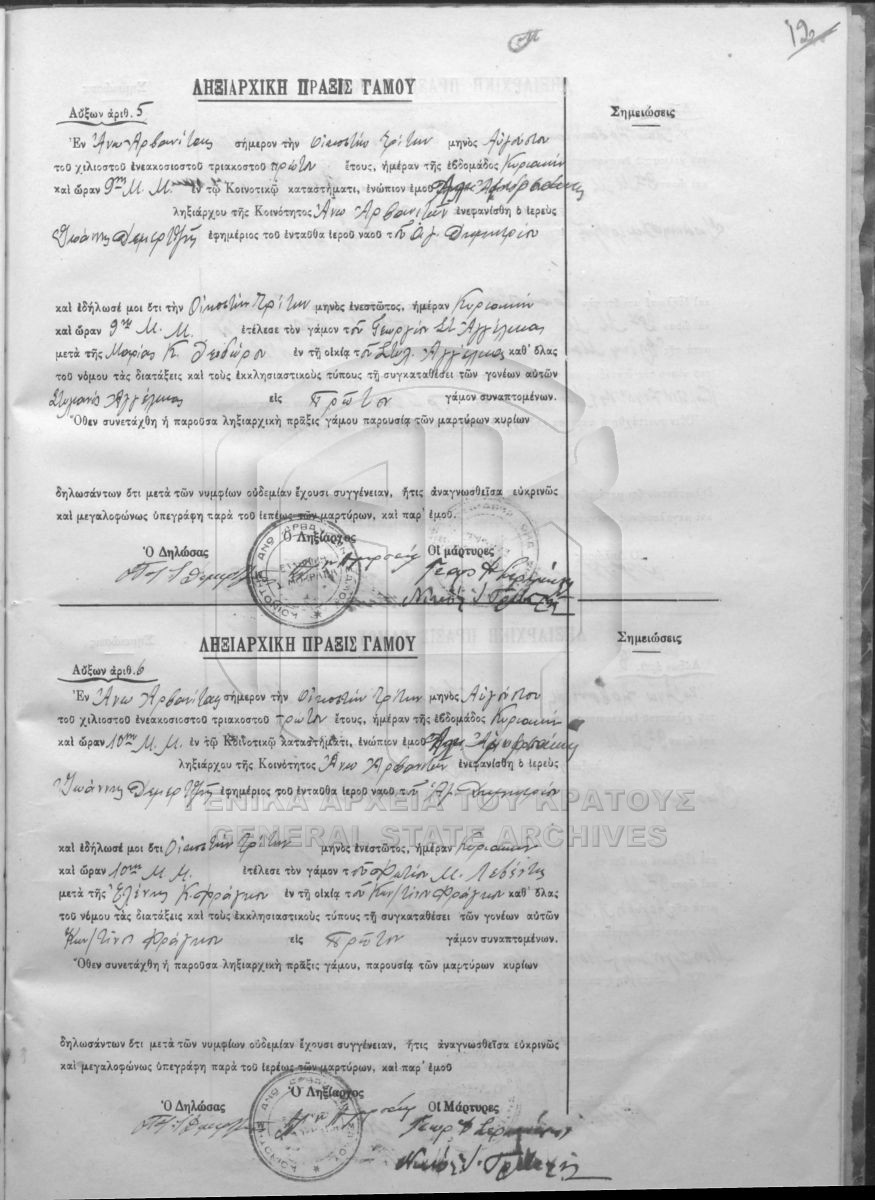 12
ΛΗΞΙΑΡΧΙΚΗ ΠΡΑΞΙΣ ΓΑΜΟΥ
Αὔξων ἀριθ. 5
Σημειώσεις
Ἐν Ἄνω Ἀρβανίτας σήμερον τὴν εἰκοστὴν τρίτην μηνὸς Αὐγούστου
τοῦ χιλιοστοῦ ἐνεακοσιοστοῦ τριακοστοῦ πρώτου ἔτους, ἡμέραν τῆς ἑβδομάδος Κυριακὴν
καὶ ὥραν 9ην Μ. Μ. ἐν τῷ Κοινοτικῷ καταστήματι, ἐνώπιον ἐμοῦ
ληξιάρχου τῆς Κοινότητος Ἄνω Ἀρβανιτῶν ἐνεφανίσθη ὁ ἱερεὺς
Ἰωάννης Δεμερτζῆς ἐφημέριος τοῦ ἐνταῦθα ἱεροῦ ναοῦ τοῦ Ἁγ. Δημητρίου
καὶ ἐδήλωσέ μοι ὅτι τὴν Εἰκοστὴν τρίτην μηνὸς ἐνεστῶτος, ἡμέραν Κυριακὴν
καὶ ὥραν 9ην Μ. Μ. ἐτέλεσε τὸν γάμον τοῦ Γεωργίου Στ. Ἀγγέλκας
μετὰ τῆς Μαρίας Κ. Θεοδώρου ἐν τῇ οἰκίᾳ τοῦ Στυλ. Ἀγγέλκας καθ' ὅλας
τοῦ νόμου τὰς διατάξεις καὶ τοὺς ἐκκλησιαστικοὺς τύπους τῇ συγκαταθέσει τῶν γονέων αὐτῶν
Στυλιανὸς Ἀγγέλκας εἰς πρῶτον γάμον συναπτομένων.
Ὅθεν συνετάχθη ἡ παροῦσα ληξιαρχικὴ πρᾶξις γάμου παρουσίᾳ τῶν μαρτύρων κυρίων
δηλωσάντων ὅτι μετὰ τῶν νυμφίων οὐδεμίαν ἔχουσι συγγένειαν, ἥτις ἀναγνωσθεῖσα εὐκρινῶς
καὶ μεγαλοφώνως ὑπεγράφη παρὰ τοῦ ἱεπέως τῶν μαρτύρων, καὶ παρ' ἐμοῦ.
Ὁ Δηλώσας
Ὁ Ληξίαρχος
Οἱ μάρτυρες
ΛΗΞΙΑΡΧΙΚΗ ΠΡΑΞΙΣ ΓΑΜΟΥ
Σημειώσεις
Αὔξων ἀριθ. 6
Ἐν Ἄνω Ἀρβανίτας σήμερον τὴν εἰκοστὴν τρίτην μηνὸς Αὐγούστου
τοῦ χιλιοστοῦ ἐνεακοσιοστοῦ τριακοστοῦ πρώτου ἔτους, ἡμέραν τῆς ἑβδομάδος Κυριακὴν
καὶ ὥραν 10ην Μ. Μ. ἐν τῷ Κοινοτικῷ καταστήματι, ἐνώπιον ἐμοῦ
ληξιάρχου τῆς Κοινότητος Ἄνω Ἀρβανιτῶν ἐνεφανίσθη ὁ ἱερεὺς
Ἰωάννης Δεμερτζῆς ἐφημέριος τοῦ ἐνταῦθα ἱεροῦ ναοῦ τοῦ Ἁγ. Δημητρίου
ΓΕΝΙΚΑ ΑΡΧΕΙΑ ΤΟΥ ΚΡΑΤΟΥΣ
GENERAL STATE ARCHIVES
καὶ ἐδήλωσέ μοι ὅτι Εἰκοστὴν τρίτην μηνὸς ἐνεστῶτος, ἡμέραν Κυριακὴν
καὶ ὥραν 10ην Μ. Μ. ἐτέλεσε τὸν γάμον τοῦ Φωτίου Μ. Λεβέντη
μετὰ τῆς Ἑλένης Κ. Φράγκου ἐν τῇ οἰκίᾳ τοῦ Κων/τίνου Φράγκου καθ' ὅλας
τοῦ νόμου τὰς διατάξεις καὶ τοὺς ἐκκλησιαστικοὺς τύπους τῇ συγκαταθέσει τῶν γονέων αὐτῶν
Κων/τῖνος Φράγκου εἰς πρῶτον γάμον συναπτομένων.
Ὅθεν συνετάχθη ἡ παροῦσα ληξιαρχικὴ πρᾶξις γάμου, παρουσίᾳ τῶν μαρτύρων κυρίων
δηλωσάντων ὅτι μετὰ τῶν νυμφίων οὐδεμίαν ἔχουσι συγγένειαν, ἥτις ἀναγνωσθεῖσα εὐκρινῶς
καὶ μεγαλοφώνως ὑπεγράφη παρὰ τοῦ ἱερέως τῶν μαρτύρων, καὶ παρ' ἐμοῦ
Ὁ Δηλώσας
Ὁ Ληξίαρχος
Οἱ Μάρτυρες